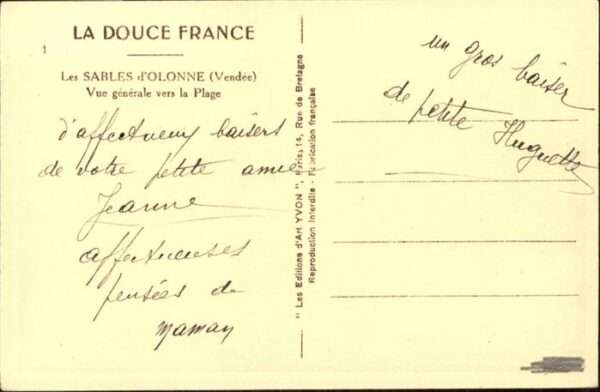 LA DOUCE FRANCE
1
Les SABLES d'OLONNE (Vendée)
Vue générale vers la Plage
d'affectueux baisers
de votre petite amie
Jeanne
affectueuses
pensées de
maman
" Les Editions d'Art YVON ", Paris, 14, Rue de Bretagne
Reproduction Interdite - Fabrication française
un gros baiser
de petite Huguette